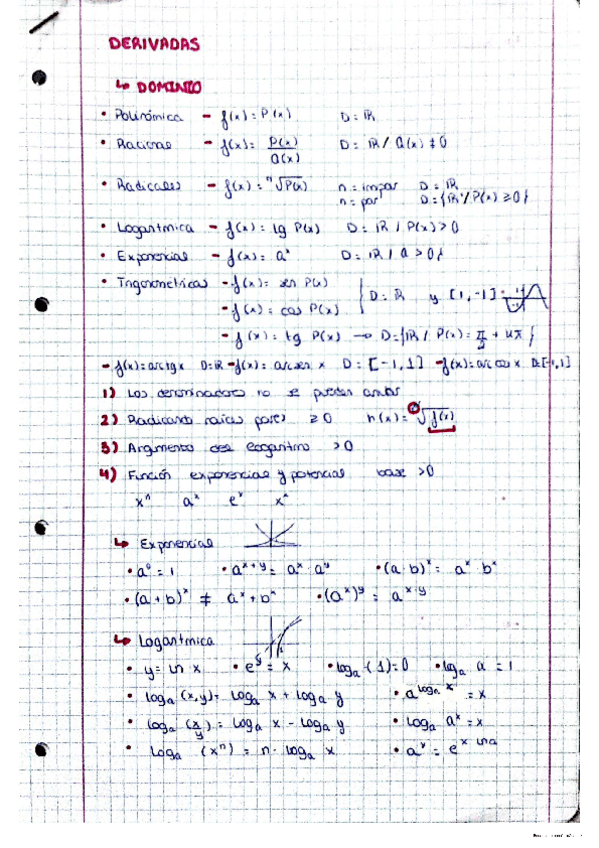 DERIVADAS
↳ DOMINIO
• Polinómica - f(x) = P(x) D = ℝ
• Racional - f(x) = P(x)/Q(x) D = ℝ / Q(x) ≠ 0
• Radicales - f(x) = ⁿ√P(x) n = impar D = ℝ
n = par D = {ℝ / P(x) ≥ 0}
• Logarítmica - f(x) = lg P(x) D = ℝ / P(x) > 0
• Exponencial - f(x) = aˣ D = ℝ / a > 0}
• Trigonométricas - f(x) = sen P(x)
- f(x) = cos P(x) } D = ℝ y [1, -1] =
- f(x) = tg P(x) → D = {ℝ / P(x) = π/2 + kπ}
- f(x) = arctg x D = ℝ - f(x) = arcsen x D = [-1, 1] - f(x) = arc cos x D = [-1, 1]
1) Los denominadores no se pueden anular
2) Radicando raíces pares ≥ 0 h(x) = √f(x)
3) Argumento del logaritmo > 0
4) Función exponencial y potencial base > 0
xⁿ aˣ eˣ xˣ
↳ Exponencial
• a⁰ = 1 • aˣ⁺ʸ = aˣ aʸ • (a · b)ˣ = aˣ bˣ
• (a + b)ˣ ≠ aˣ + bˣ • (aˣ)ʸ = aˣ·ʸ
↳ Logarítmica
• y = ln x • eʸ = x • logₐ (1) = 0 • logₐ a = 1
• logₐ (x, y) = logₐ x + logₐ y • a^(logₐ x) = x
• logₐ (x/y) = logₐ x - logₐ y • logₐ aˣ = x
• logₐ (xⁿ) = n · logₐ x • aˣ = e^(x ln a)